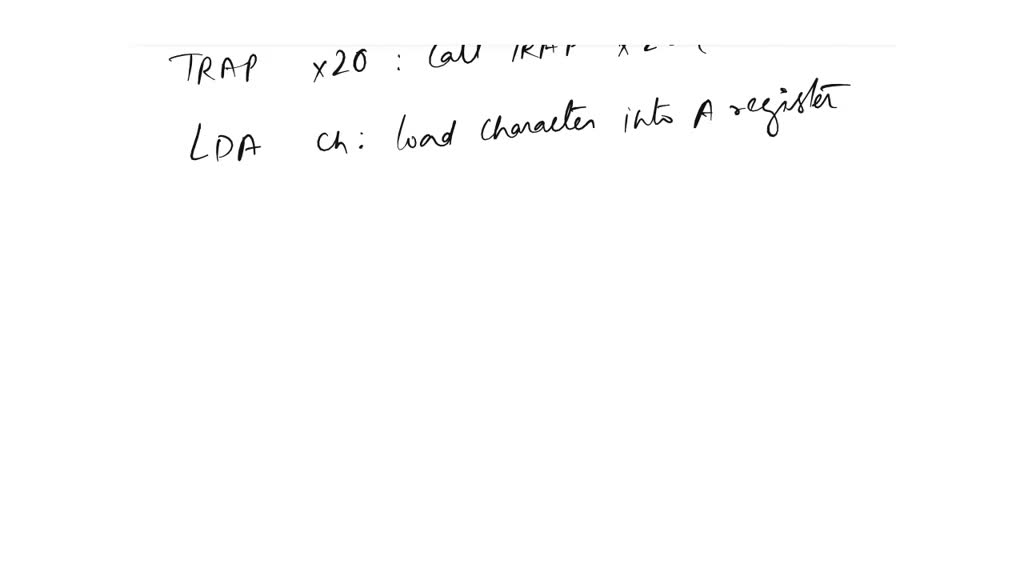 TRAP x20 : Call TRAP
LDA ch: load character into A register